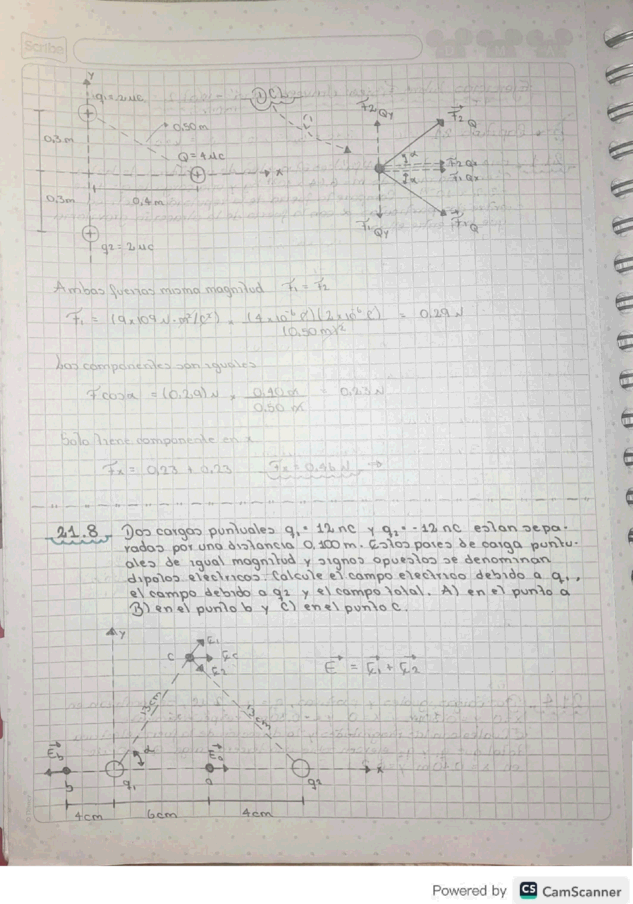 Scribe
y
q1=2μC
0,3m
0,50m
Q=4μC
x
0,3m
0,4m
q2=2μC
F2Qy
F2Q
α
F2Qx
α
F1Qx
F1Qy
F1Q
Ambas fuerzas misma magnitud F1 = F2
F1 = (9x109 N·m²/C²) · (4x10⁻⁶ C)(2x10⁻⁶ C) = 0,29 N
(0,50m)²
Las componentes son iguales
F cosα = (0,29)N · 0,40m = 0,23 N
0,50m
Solo tiene componente en x
Fx = 0,23 + 0,23 Fx = 0,46 N →
21.8 Dos cargas puntuales q1 = 12 nc y q2 = -12 nc estan sepa-
radas por una distancia 0,100 m. Estos pares de carga puntu-
ales de igual magnitud y signos opuestos se denominan
dipolos electricos. Calcule el campo electrico debido a q1,
el campo debido a q2 y el campo total. A) en el punto a
B) en el punto b y C) en el punto c.
y
E1
c
Ec
E2
E = E1 + E2
13cm
13cm
Eb
α
Ea
x
b
q1
a
q2
4cm
6cm
4cm
Powered by CS CamScanner